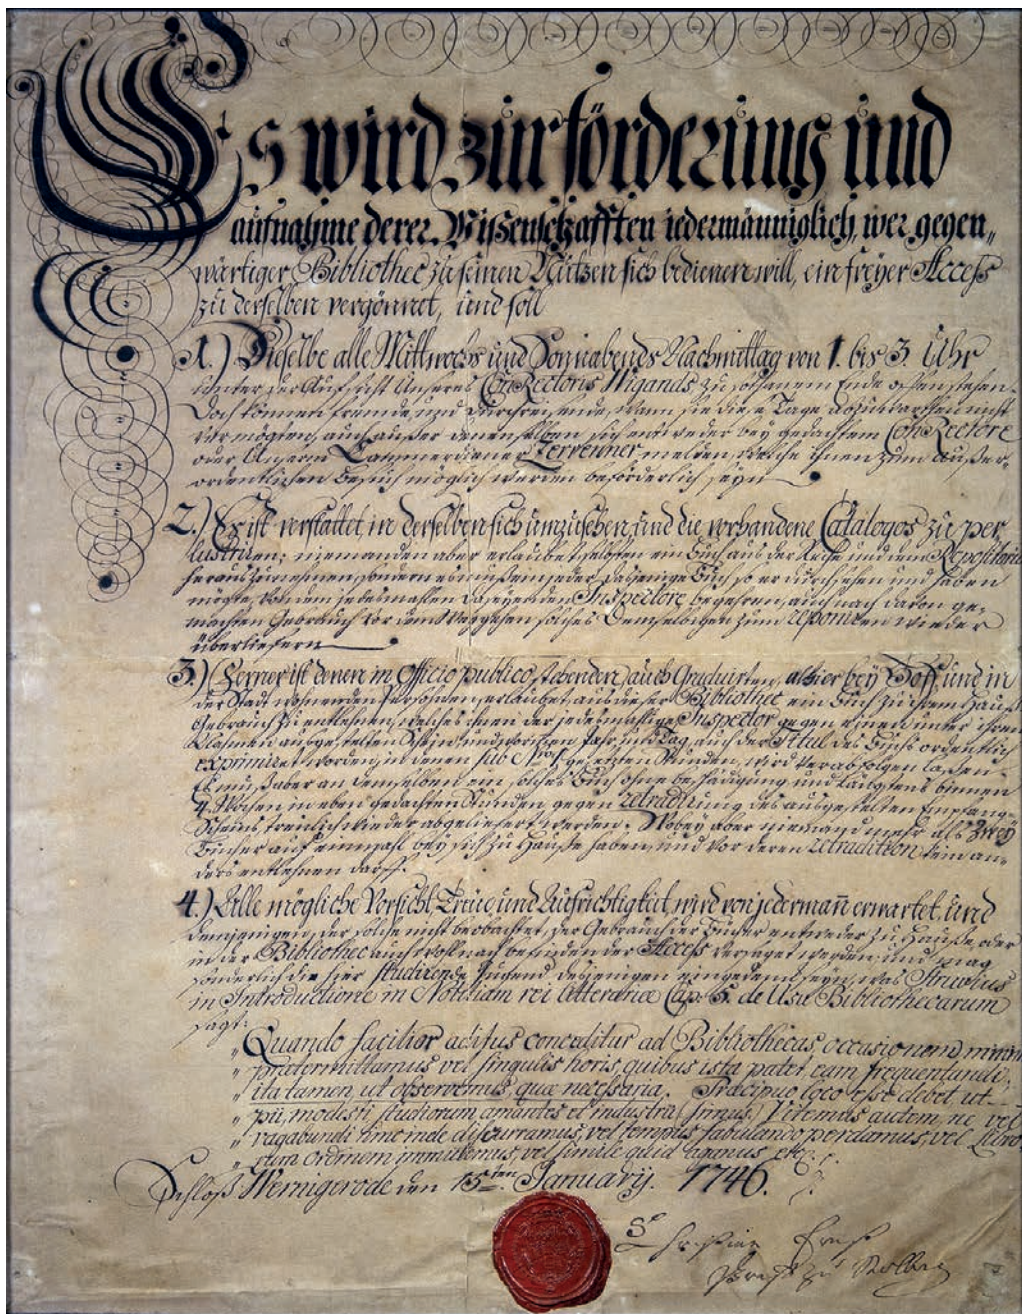 Es wird zur förderung und
aufnahme derer Wissenschafften iedermänniglich, wer gegen„
wärtiger Bibliothec zu seinen Nutzen sich bedienen will, ein freyer Access
zu derselben vergönnet, und soll
1.) Dieselbe alle Mittwochs und Sonnabends Nachmittag von 1. bis 3. Uhr
unter der Aufsicht Unseres ConRectoris Wigands zu solchem Ende offenstehen.
Doch können fremde und durchreisende, wann sie diese Tage abzuwarthen nicht
vermögten, auch außer denenselben sich entweder bey gedachtem ConRectore
oder Unserm Cammerdiener Zerrenner melden, welche ihnen zum außer-
ordentlichen Besuch möglich werden beförderlich seyn
2.) Es ist verstattet, in derselben sich umzusehen, und die vorhandene Catalogos zu per
lustriren; niemanden aber erlaubet, selbsten ein Buch aus der Reyhe und den Repositoriis
herauszunehmen, sondern es muß ein jeder dasjenige Buch so er durchsehen und haben
mögte, von dem jedesmahlen daseyenden Inspectore begehren, auch nach davon ge-
machten Gebrauch vor dem Weggehen solches demselbigen zum reponiren wieder
überliefern
3.) Ferner ist denen in Officio publico stehenden, auch Graduirten, alhier bey Hoff und in
der Stadt wohnenden Persohnen erlaubet, aus dieser Bibliothec ein Buch zu ihrem Hauß
Gebrauch zu entlehnen, welches ihnen der jedesmahlige Inspector gegen einen unter ihren
Nahmen ausgestelten Schein, und worinnen Jahr und Tag, auch der Titul des Buchs ordentlich
exprimiret worden, in denen sub No. 1. gesetzten Stunden, wird verabfolgen lassen.
Es muß aber an demselben ein solches Buch ohne beschädigung und längstens binnen
4. Wochen in eben gedachten Stunden gegen retradirung des ausgestelten Empfang-
Scheins treulich wieder abgeliefert werden. Wobey aber niemand mehr als zwey
Bücher auf einmahl bey sich zu Hauße haben, und vor deren retradition kein an-
ders entlehnen darff.
4.) Alle mögliche Vorsicht, Treue, und Aufrichtigkeit, wird von jedermañ erwartet, und
demjenigen, der solche nicht beobachtet, der Gebrauch der Bücher entweder zu Hauße, oder
in der Bibliothec auch wohl nach befinden der Access versaget werden; und mag
sonderlich die hier studirende Jugend desjenigen eingedenk seyn, was Struvius
in Introductione in Notitiam rei litterariæ Cap. 5. de Usu Bibliothecarum
sagt:
„Quando facilior aditus conceditur ad Bibliothecas, occasionem, minim
„ prætermittamus vel singulis horis, quibus ista patet eam frequentandi,
„ ita tamen, ut observemus, quæ necessaria. Præcipuo loco esse debet ut
„ pii, modesti studiorum amantes et industrii simus. Vitemus autem, ne vel
„ vagabundi hinc inde discurramus, vel tempus fabulando perdamus, vel Libro
„ rum ordinem immutemus, vel simile quid agamus, etc.
Schloß Wernigerode den 15ten January. 1746.
Christian Ernst
Graf zu Stolberg